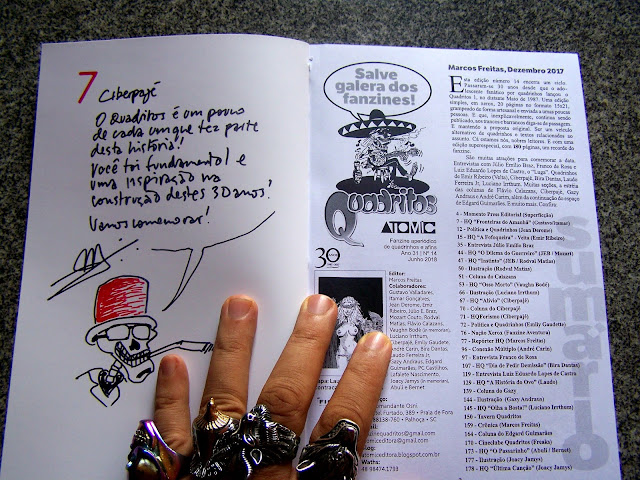 7
Ciberpajé
O Quadritos é um pouco
de cada um que fez parte
desta história!
Você foi fundamental e
uma inspiração na
construção destes 30 anos!
Vamos comemorar!
Salve
galera dos
fanzines!
Quadritos
ATOMIC
Fanzine aperiódico
de quadrinhos e afins
Ano 31 | Nº 14
Junho 2018
30
Editor:
Marcos Freitas
Colaboradores:
Gustavo Valladares,
Itamar Gonçalves,
Jean Derome, Emir
Ribeiro, Júlio E. Braz,
Mozart Couto, Rodval
Matias, Flavio Calazans,
Vaughn Bodé (in memorian),
Luciano Irrthum,
Ciberpajé, Emily Gaudette,
André Carim, Bira Dantas,
Laudo Ferreira Jr,
Gazy Andraus, Edgard
Guimarães, PC Castilhos,
Lafaiete Nascimento,
Joacy Jamys (in memorian),
Abuli e Bernet
Marcos Freitas, Dezembro 2017
Esta edição número 14 encerra um ciclo.
Passaram-se 30 anos desde que o ado-
lescente fanático por quadrinhos lançou o
Quadritos 1, no distante Maio de 1987. Uma edição
simples, em xerox, 20 páginas no formato 15x21,
grampeado de forma artesanal e enviada a umas poucas
pessoas. E que, inexplicavelmente, continua sendo
publicado, aos trancos e barrancos diga-se de passagem.
E mantendo a proposta original. Ser um veículo
alternativo de quadrinhos e textos relacionados ao
assunto. Cá estamos nós, nobres leitores. E com uma
edição superespecial, com 180 páginas, um recorde do
fanzine.
São muitas atrações para comemorar a data.
Entrevistas com Júlio Emílio Braz, Franco de Rosa e
Luiz Eduardo Lopes de Castro, o "Luga". Quadrinhos
de Emir Ribeiro (Velta), Ciberpajé, Bira Dantas, Laudo
Ferreira Jr, Luciano Irrthum. Muitas seções, a estréia
das colunas de Flávio Calazans, Ciberpajé, Gazy
Andraus e André Carim, além da continuação do espaço
de Edgard Guimarães. E muito mais. Confira:
4 - Momento Press Editorial (Superfecção)
7 - HQ "Fronteiras do Amanhã" (GustavoItamar)
12 - Política e Quadrinhos (Jean Derome)
15 - HQ "A Fofoqueira" - Velta (Emir Ribeiro)
35 - Entrevista Júlio Emílio Braz
44 - HQ "O Dilema do Guerreiro" (JEB / Mozart)
47 - HQ "Instinto" (JEB / Rodval Matias)
50 - Ilustração (Rodval Matias)
51 - Coluna do Calazans
53 - HQ "Osso Morto" (Vaughn Bodé)
66 - Ilustração (Luciano Irrthum)
67 - HQ "Alívio" (Ciberpajé)
70 - Coluna do Ciberpajé
71 - HQForismo (Ciberpajé)
72 - Política e Quadrinhos (Emily Gaudette)
76 - Nação Xerox (Fanzine Aventura)
77 - Repórter HQ (Marcos Freitas)
96 - Conexão Múltiplo (André Carim)
97 - Entrevista Franco de Rosa
115 - HQ "Dia de Pedir Demissão" (Bira Dantas)
119 - Entrevista Luiz Eduardo Lopes de Castro
129 - HQ "A História do Ovo" (Laudo)
139 - Coluna do Gazy
144 - Ilustração (Gazy Andraus)
145 - HQ "Olha a Bosta!" (Luciano Irrthum)
150 - Tavern Quadritos
159 - Crônica (Marcos Freitas)
164 - Coluna do Edgard Guimarães
170 - Cineclube Quadritos (Freaks)
173 - HQ "O Passarinho" (Abuli / Bernet)
177 - Ilustração (Joacy Jamys)
178 - HQ "Última Canção" (Joacy Jamys)